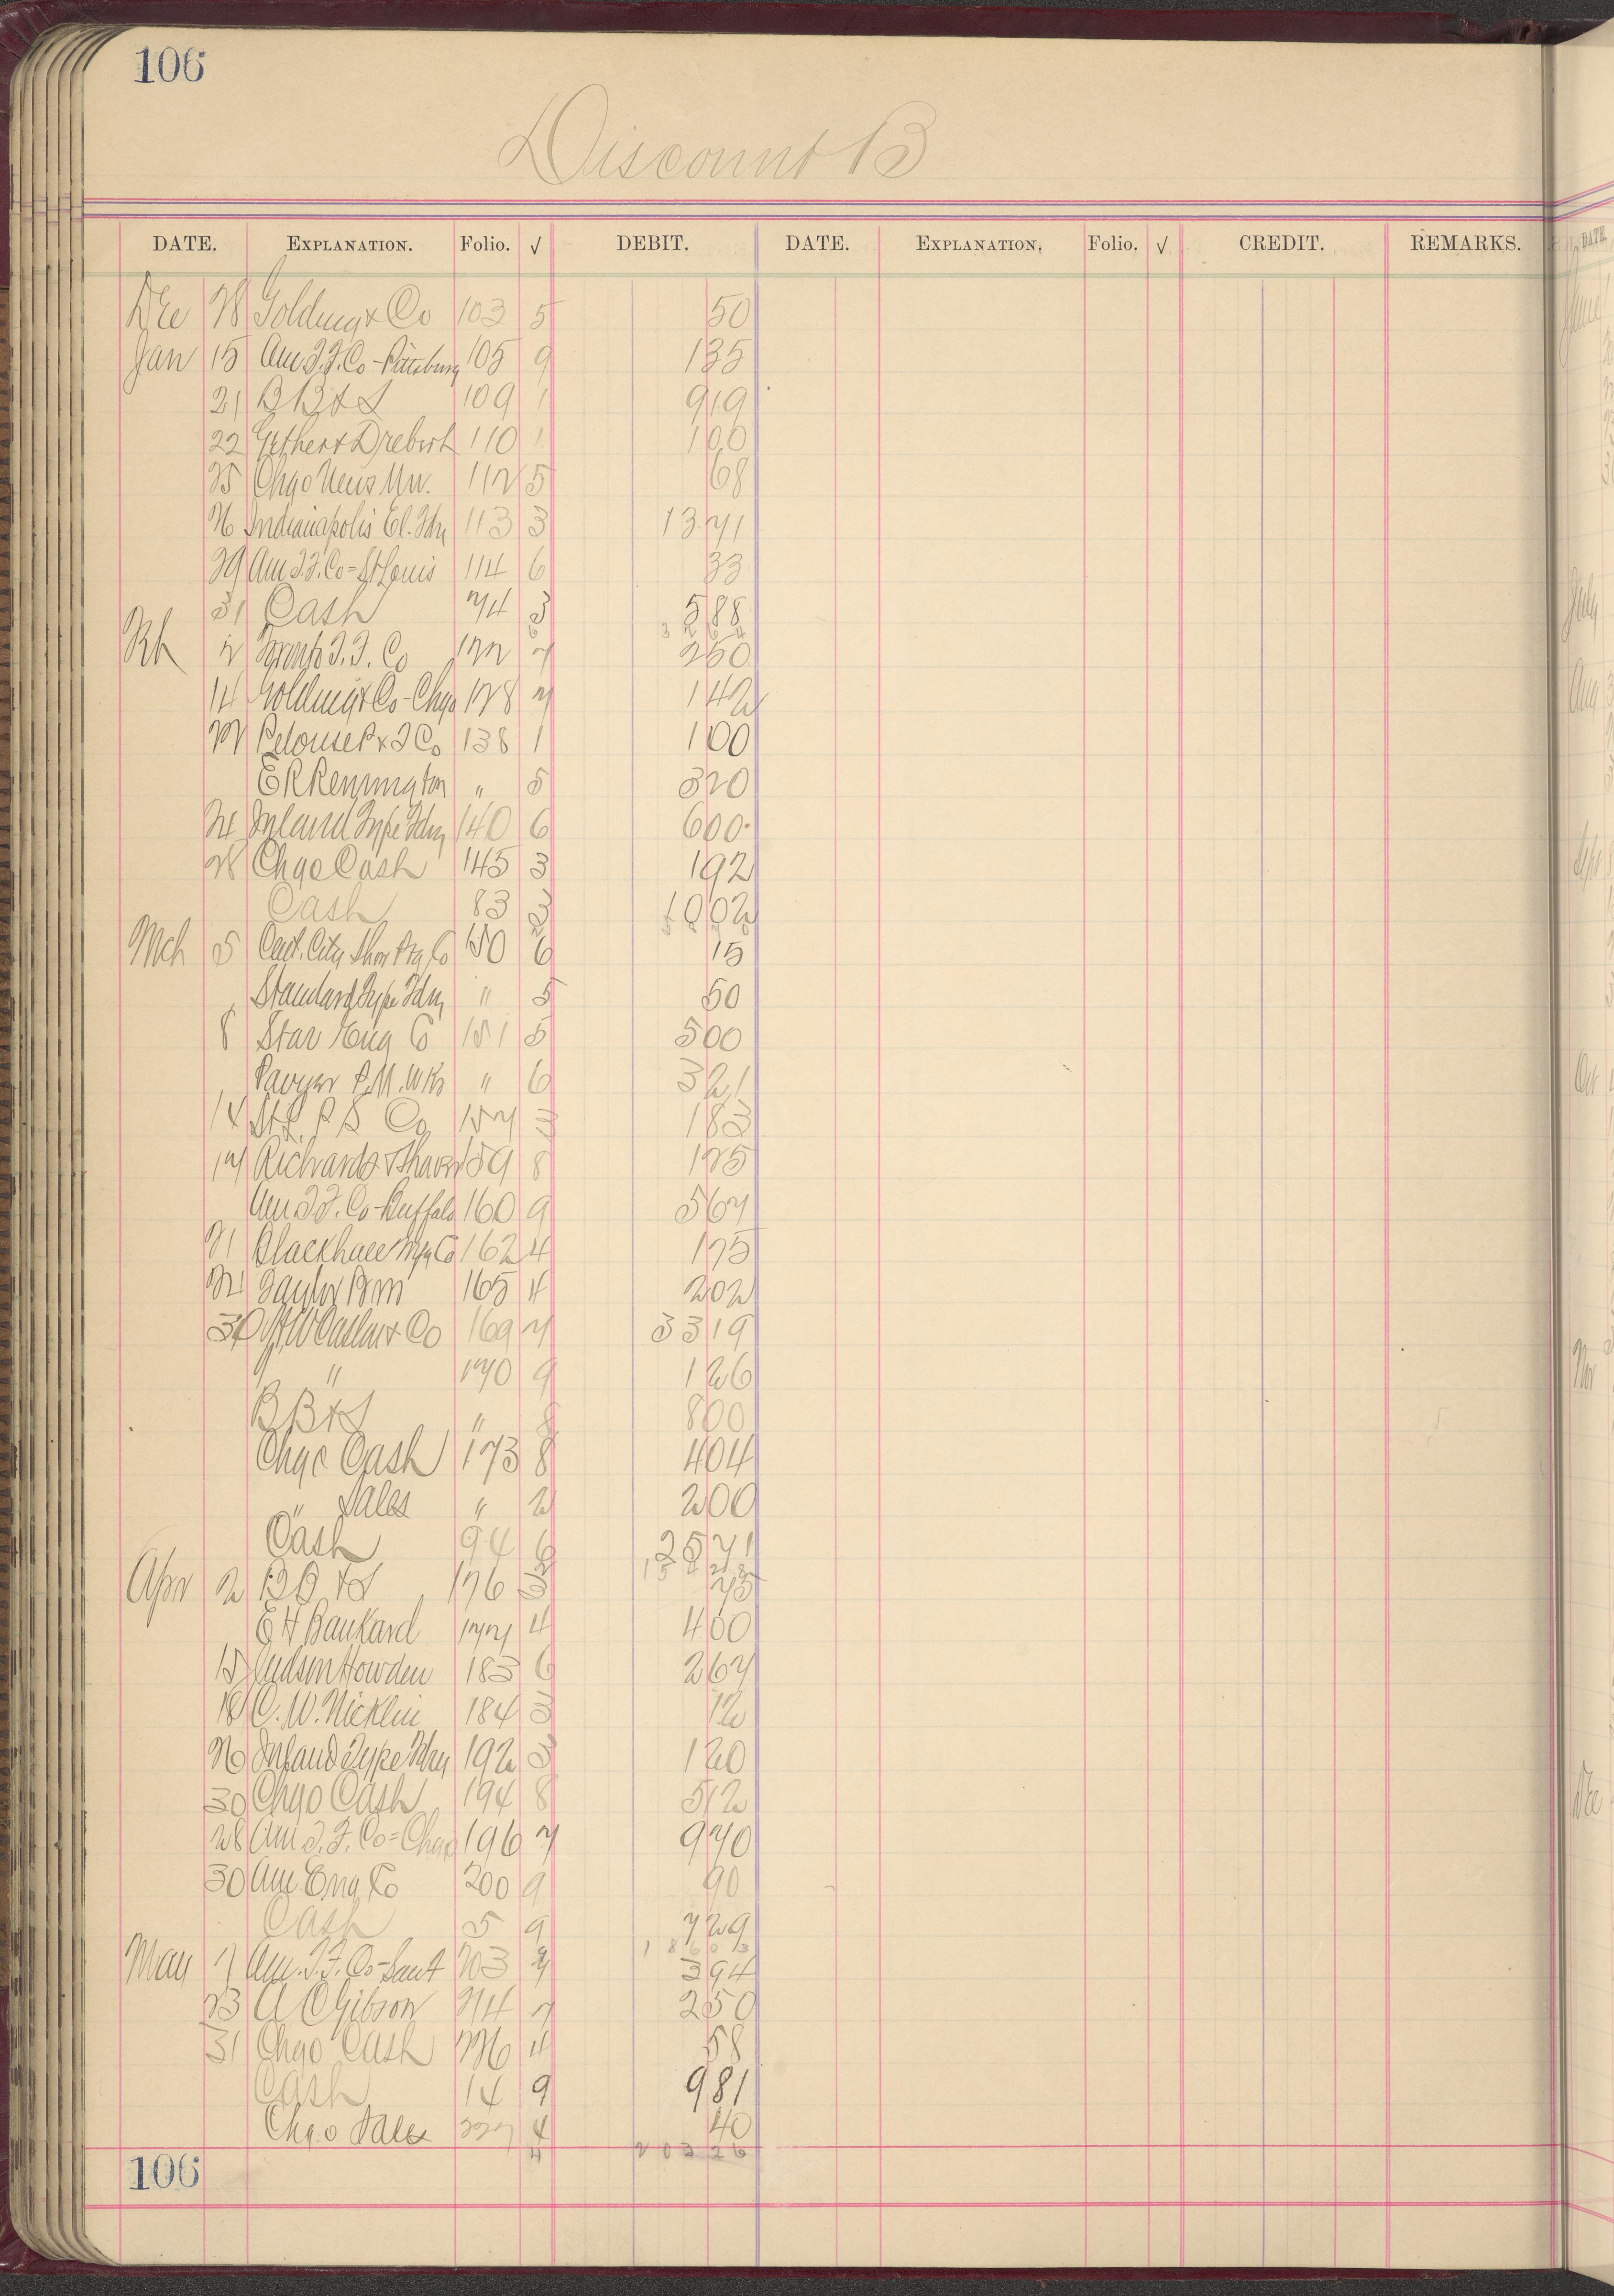 106
Discount B
DATE. EXPLANATION. Folio. √ DEBIT. DATE. EXPLANATION. Folio. √ CREDIT. REMARKS.
Dec 28 Golding & Co 103 5 50
Jan 15 Am T.F. Co - Pittsburg 105 9 135
21 B B & S 109 1 919
22 Gether & Drebert 110 1 100
25 Chgo News Un. 112 5 68
26 Indianapolis El. Fdry 113 3 1371
29 Am T.F. Co = St Louis 114 6 33
31 Cash 74 3 588
Feb 2 T.F. Co 122 7 250
14 Golding & Co - Chgo 128 7 142
22 Pelouse P & S Co 138 1 100
E R Remington " 5 320
24 Inland Type Fdry 140 6 600
28 Chgo Cash 145 3 192
Cash 83 3 1002
Mch 5 City Co 150 6 15
Standard Type Fdry " 5 50
8 Star Eng Co 151 5 500
P.M. Wks " 6 321
14 St L. P S Co 157 3 183
17 Richards 159 8 125
Am T.F. Co - Buffalo 160 9 567
21 Blackhall Mfg Co 162 4 175
Taylor Bros 165 4 202
30 H W Caslon & Co 169 7 3319
" 170 9 126
B B & S " 8 800
Chgo Cash 173 8 404
" Sales " 2 200
Cash 94 6 2571
Apr 2 B B & S 176 75
E H Bankard 177 4 400
15 Judson Howden 183 6 267
18 C. W. Nicklin 184 3 12
26 Inland Type Fdry 192 3 120
30 Chgo Cash 194 8 512
28 Am T. F. Co = Chgo 196 7 970
30 Am Eng Co 200 9 90
Cash 5 9 729
May 7 Am. T.F. Co 203 394
23 A C Gibson 214 7 250
31 Chgo Cash 226 4 58
Cash 14 9 981
Chgo Sales 227 4 40
4 20326
106